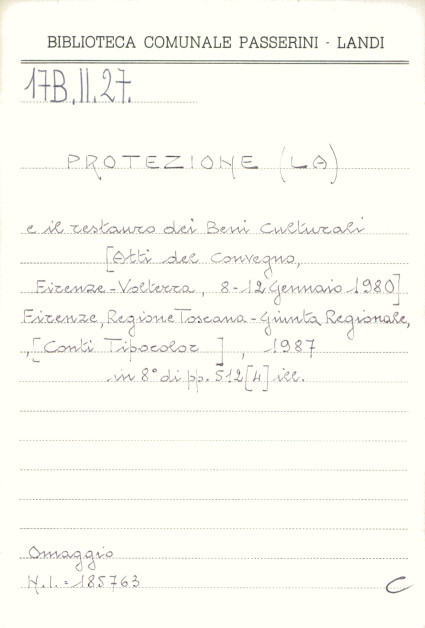 BIBLIOTECA COMUNALE PASSERINI - LANDI
17B.II.27.
PROTEZIONE (LA)
e il restauro dei Beni Culturali
[Atti del Convegno,
Firenze - Volterra, 8-12 Gennaio 1980]
Firenze, Regione Toscana - Giunta Regionale,
,[Conti Tipocolor ] , 1987
in 8° di pp. 512[4] ill.
Omaggio
N.I. = 185763
C